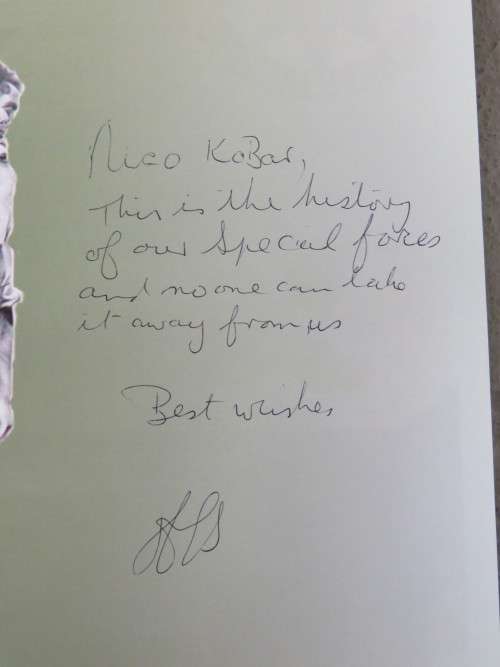 Nico KoBar,
This is the history
of our Special forces
and no one can take
it away from us
Best wishes